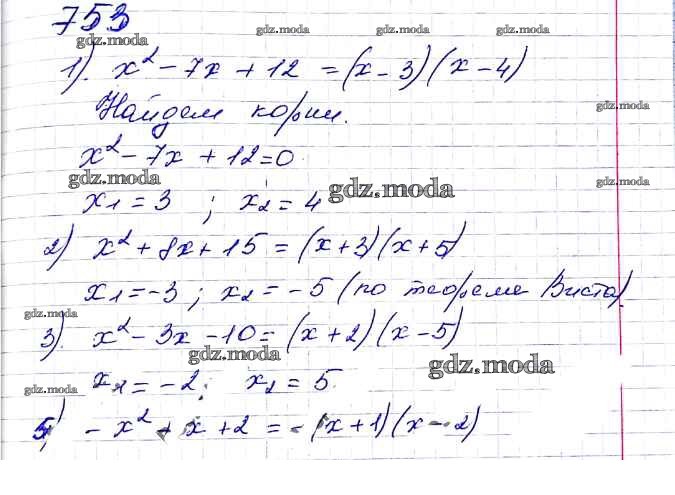 753
gdz.moda gdz.moda gdz.moda gdz.moda
1). x² - 7x + 12 = (x - 3)(x - 4)
Найдем корни.
gdz.moda
x² - 7x + 12 = 0
gdz.moda gdz.moda gdz.moda
x1 = 3 ; x2 = 4
2) x² + 8x + 15 = (x + 3)(x + 5)
x1 = -3 ; x2 = -5 (по теореме Виета).
gdz.moda
3). x² - 3x - 10 = (x + 2)(x - 5)
gdz.moda gdz.moda
x1 = -2; x2 = 5.
gdz.moda
5) - x² + x + 2 = - (x + 1)(x - 2)